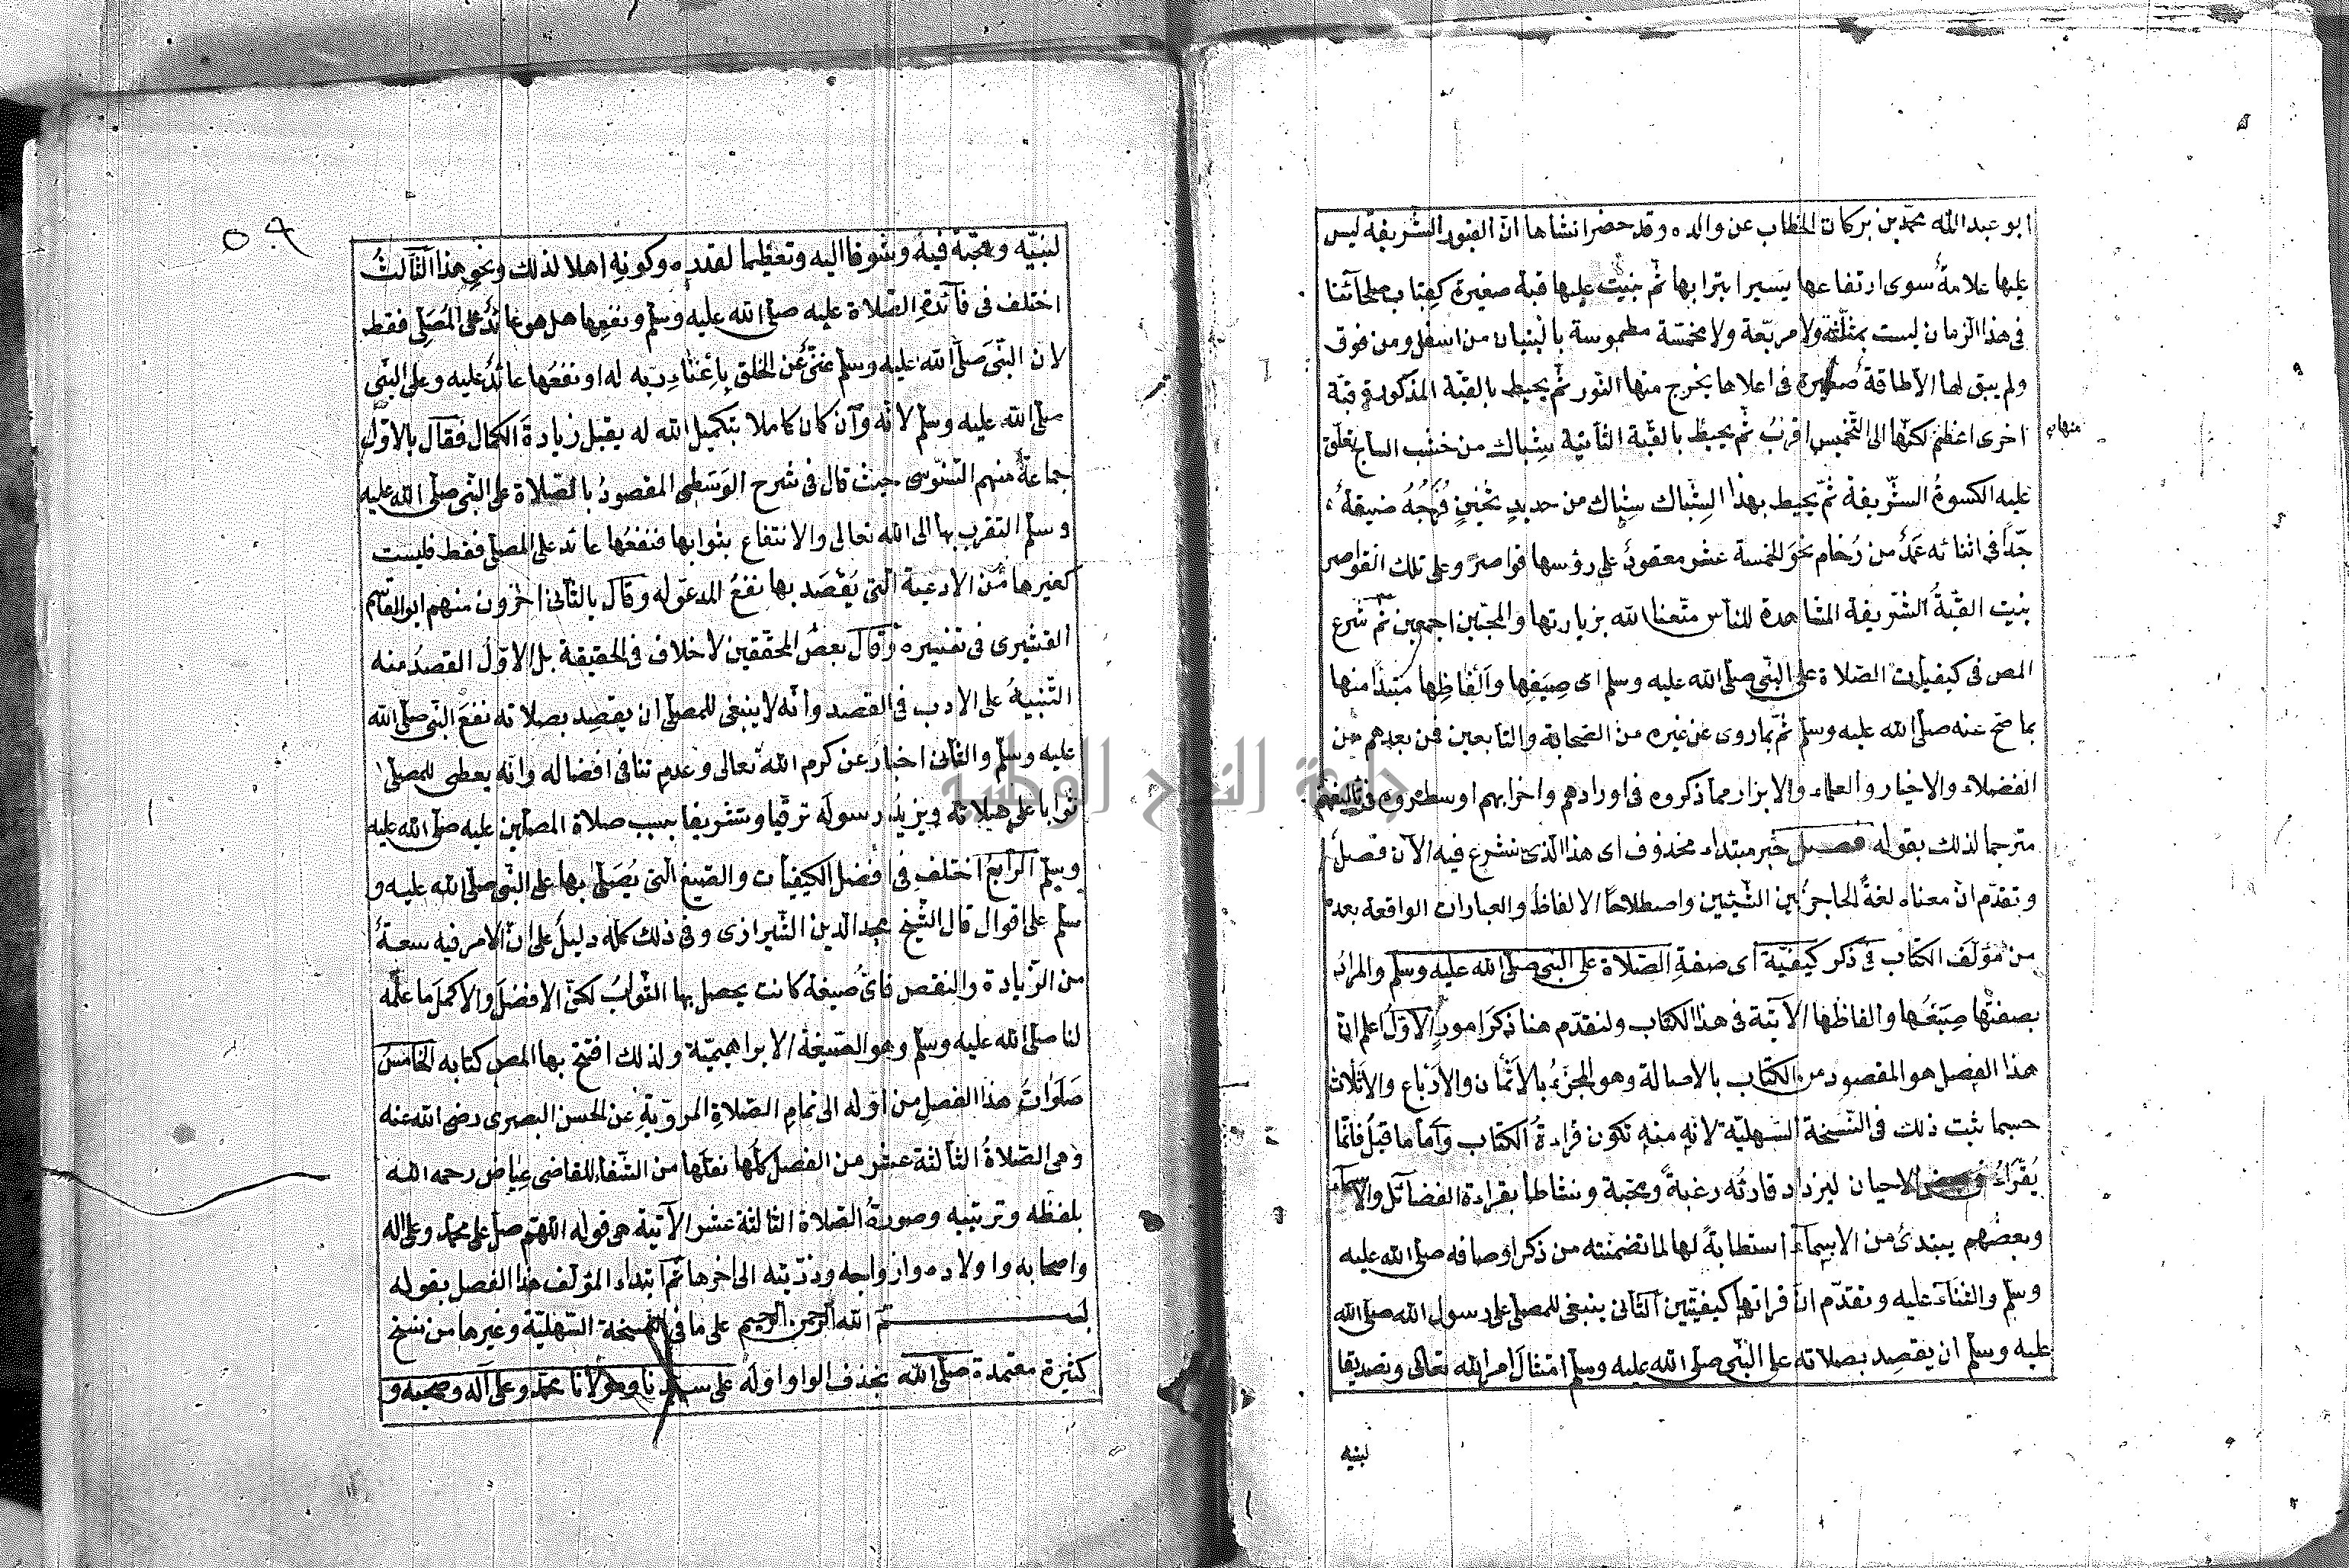 ابو عبد الله محمد بن بركات الحطاب عن والده وقد حضر انشاها ان القبور الشريفة ليس
عليها علامة سوى ارتفاعها يسيرا بترابها ثم بنيت عليها قبة صغيرة كقباب صلحائنا
فى هذا الزمان ليست بمثلثة ولا مربعة ولا مخمسة مطموسة بالبنيان من اسفل ومن فوق
ولم يبق لها الا طاقة صغيرة فى اعلاها يخرج منها النور ثم يحيط بالقبة المذكورة قبة
اخرى اعظم لكنها الى التخميس اقرب ثم يحيط بالقبة الثانية شباك من خشب الساج تعلق
منها
عليه الكسوة الشريفة ثم يحيط بهذا الشباك شباك من حديد ثخين فرجه ضيقة
جدا فى اثنائه عمد من رخام نحو الخمسة عشر معقود على رؤسها قواصر وعلى تلك القواصر
بنيت القبة الشريفة المشاهدة للناس متعنا الله بزيارتها والمحبين اجمعين ثم شرع
المص فى كيفيات الصلاة على النبى صلى الله عليه وسلم اى صيغها وألفاظها مبتدأ منها
بما صح عنه صلى الله عليه وسلم ثم بما روى عن غيره من الصحابة والتابعين فمن بعدهم من
الفضلاء والاخيار والعلماء والابرار مما ذكروه فى اورادهم واحزابهم او سطروه فى تآليفهم
مترجما لذلك بقوله فصل خبر مبتداء محذوف اى هذا الذى نشرع فيه الآن فصل
وتقدم ان معناه لغة الحاجز بين الشيئين واصطلاحا الالفاظ والعبارات الواقعة بعده
من مؤلف الكتاب فى ذكر كيفية اى صفة الصلاة على النبى صلى الله عليه وسلم والمراد
بصفتها صيغها والفاظها الآتية فى هذا الكتاب ولنقدم هنا ذكر امور الاول اعلم ان
هذا الفصل هو المقصود من الكتاب بالاصالة وهو المجزء بالاثمان والارباع والاثلاث
حسبما ثبت ذلك فى النسخة السهلية لانه منه تكون قراءة الكتاب واما ما قبل فانما
يقراء فى بعض الاحيان ليزداد قارئه رغبة ومحبة ونشاطا بقراءة الفضائل والاسماء
وبعضهم يبتدئ من الاسماء استطابة لها لما تضمنته من ذكر اوصافه صلى الله عليه
وسلم والثناء عليه وتقدم ان قراتها كيفيتين الثانى ينبغى للمصلى على رسول الله صلى الله
عليه وسلم ان يقصد بصلاته على النبى صلى الله عليه وسلم امتثال امر الله تعالى وتصديقا
لنبيه
٥٩
لنبيه ومحبة فيه وشوقا اليه وتعظيما لقدره وكونه اهلا لذلك ونحو هذا الثالث
اختلف فى فائدة الصلاة عليه صلى الله عليه وسلم ونفعها هل هو عائد على المصلى فقط
لان النبى صلى الله عليه وسلم غنى عن الخلق باغناء ربه له او نفعها عائد عليه وعلى النبى
صلى الله عليه وسلم لانه وان كان كاملا بتكميل الله له يقبل زيادة الكمال فقال بالاول
جماعة منهم السنوسى حيث قال فى شرح الوسطى المقصود بالصلاة على النبى صلى الله عليه
وسلم التقرب بها الى الله تعالى والانتفاع بثوابها فنفعها عائد على المصلى فقط فليست
كغيرها من الادعية التى يقصد بها نفع المدعو له وقال بالثانى اخرون منهم ابو القاسم
القشيرى فى تفسيره وقال بعض المحققين لا خلاف فى الحقيقة بل الاول القصد منه
التنبيه على الادب فى القصد وأنه لا ينبغى للمصلى ان يقصد بصلاته نفع النبى صلى الله
عليه وسلم والثانى اخبار عن كرم الله تعالى وعدم تنافى افضاله وانه يعطى للمصلى
ثوابا على صلاته ويزيد رسوله ترقيا وتشريفا بسبب صلاة المصلين عليه صلى الله عليه
وسلم الرابع اختلف فى افضل الكيفيات والصيغ التى يصلى بها على النبى صلى الله عليه و
سلم على اقوال قال الشيخ مجد الدين الشيرازى وفى ذلك كله دليل على ان الامر فيه سعة
من الزيادة والنقص فاى صيغة كانت يحصل بها الثواب لكن الافضل والاكمل ما علمه
لنا صلى الله عليه وسلم وهو الصيغة الابراهيمية ولذلك افتتح بها المص كتابه الخامس
صلوات هذا الفصل من اوله الى تمام الصلاة المروية عن الحسن البصرى رضى الله عنه
وهى الصلاة الثالثة عشر من الفصل كلها نقلها من الشفاء للقاضى عياض رحمه الله
بلفظه وترتيبه وصورة الصلاة الثالثة عشر الآتية هى قوله اللهم صل على محمد وعلى اله
واصحابه واولاده وازواجه وذريته الى اخرها ثم ابتداء المؤلف هذا الفصل بقوله
بسم الله الرحمن الرحيم على ما فى النسخة السهلية وغيرها من نسخ
كثيرة معتمدة صلى الله بحذف الواو اوله على سيدنا ومولانا محمد وعلى آله وصحبه و